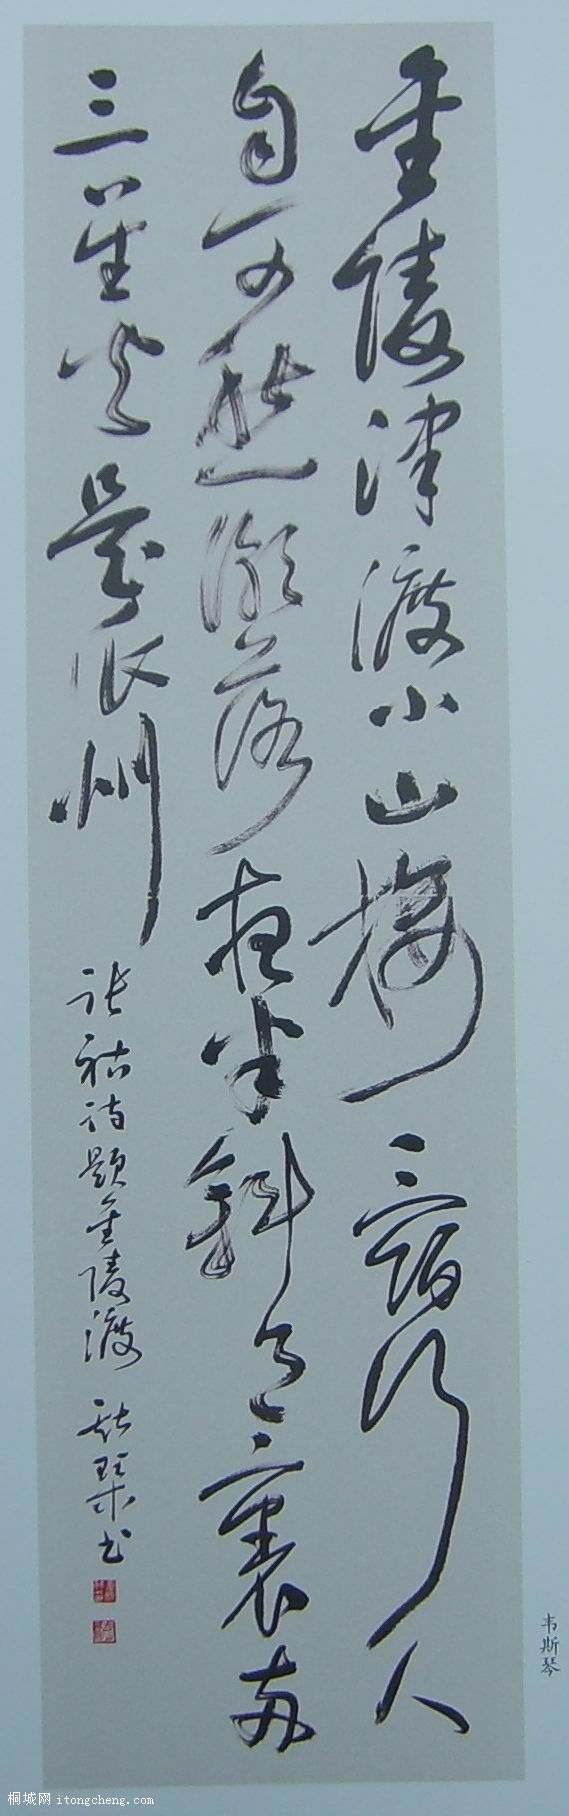 金陵津渡小山楼一宿行人
自可愁潮落夜半斜月裏两
三星火是瓜州
张祜诗题金陵渡 斯琴书
韦斯琴
桐城网 itongcheng.com